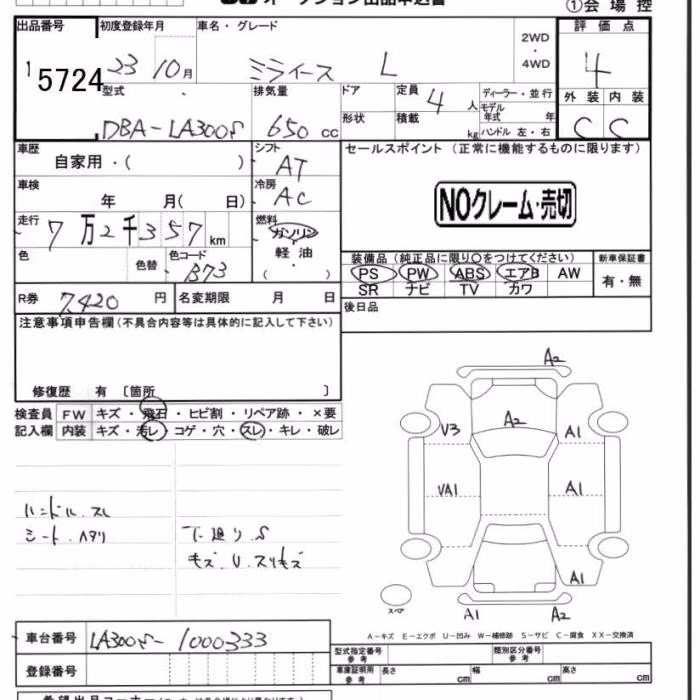 オークション出品申込書 ①会場控
出品番号 初度登録年月 車名・グレード 評価点
5724 23 10月 ミライース L 2WD・4WD 4
型式 排気量 ドア 定員 4 人 ディーラー・並行 外装 内装
DBA-LA300S 650 cc 形状 積載 kg モデル年式 年 ハンドル 左・右 C C
車歴 自家用・( ) シフト AT セールスポイント (正常に機能するものに限ります)
車検 年 月( 日) 冷房 AC NOクレーム・売切
走行 7万2千357km 燃料 ガソリン
色 色替 色コード B73 軽油 ( )
装備品 (純正品に限り○をつけてください) 新車保証書
PS PW ABS エアB AW 有・無
SR ナビ TV カワ
R券 7,420 円 名変期限 月 日 後日品
注意事項申告欄(不具合内容等は具体的に記入して下さい)
修復歴 有 〔箇所 〕
検査員 FW キズ・飛石・ヒビ割・リペア跡・×要
記入欄 内装 キズ・汚レ・コゲ・穴・スレ・キレ・破レ
ハンドル スレ
シート ヘタリ
下廻り S
キズ U スリキズ
A2
A2
V3 A1
VA1 A1
A1
スペア A1 A2
A-キズ E-エクボ U-凹み W-補修跡 S-サビ C-腐食 XX-交換済
車台番号 LA300S-1000333
登録番号
型式指定番号 参考 類別区分番号 参考
車庫証明用 参考 長さ cm 幅 cm 高さ cm
希望出品コーナー